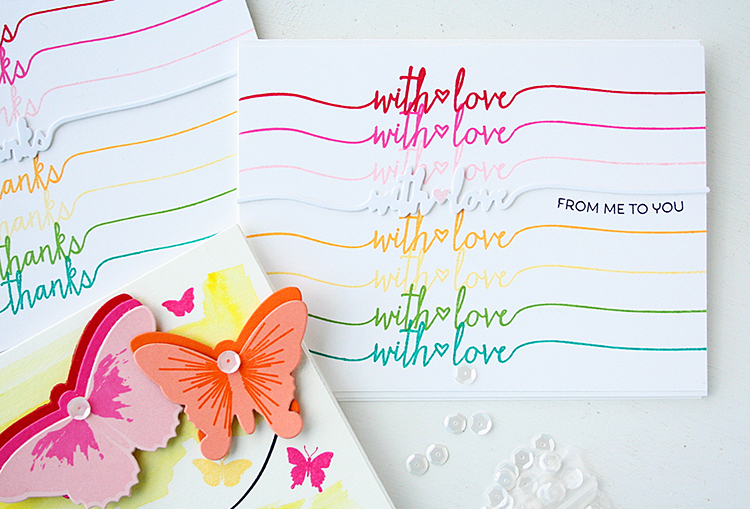 thanks
thanks
thanks
thanks
with♡love
with♡love
with♡love
with♡love
FROM ME TO YOU
with♡love
with♡love
with♡love
with♡love